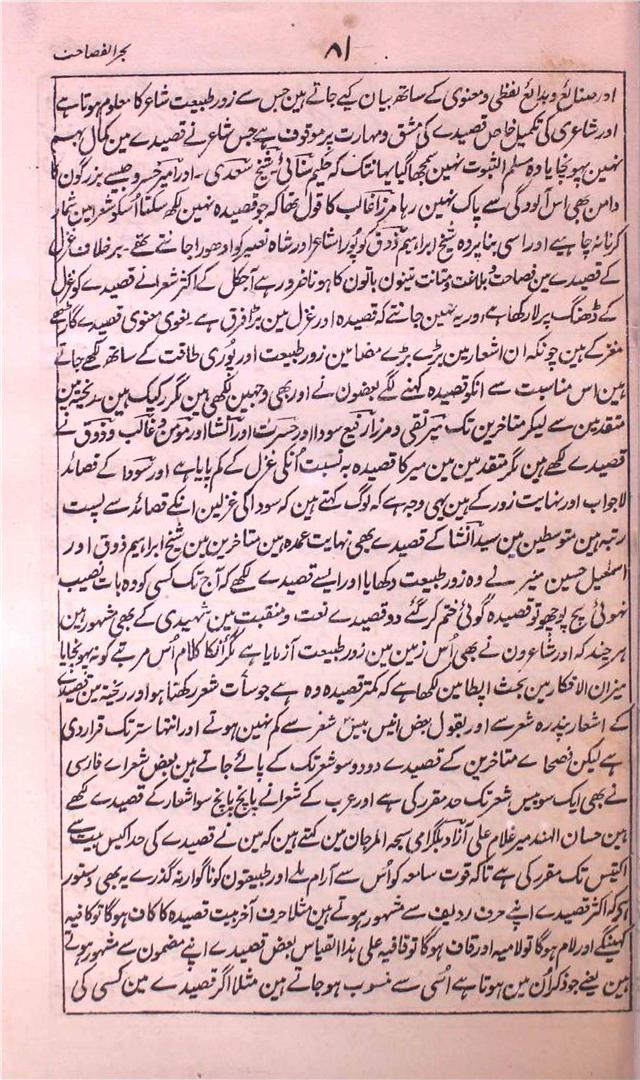 بحر الفصاحت
۸۱
اور صنائع وبدائع لفظی ومعنوی کے ساتھ بیان کیے جاتے ہین جس سے زور طبیعت شاعر کا معلوم ہوتا ہے
اور شاعری کی تکمیل خاص قصیدے کی مشق ومہارت پر موقوف ہے جس شاعر نے قصیدے مین کمال بہم
نہین پہونچایا وہ مسلم الثبوت نہین سمجھا گیا یہانتک کہ حکیم سنائی شیخ سعدی ۔ اور امیر خسرو جیسے بزرگون کا
دامن بھی اس آلودگی سے پاک نہین رہا مرزا غالب کا قول تھا کہ جو قصیدہ نہین لکھ سکتا اسکو شعرا مین شمار
کرنا نہ چاہیے اور اسی بنا پر وہ شیخ ابراہیم ذوق کو پورا شاعر اور شاہ نصیر کو ادھورا جانتے تھے ۔ برخلاف غزل
کے قصیدے مین فصاحت وبلاغت ومتانت تینون باتون کا ہونا ضرور ہے آجکل کے اکثر شعرا نے قصیدے کو غزل
کے ڈھنگ پر لا رکھا ہے اور یہ نہین جانتے کہ قصیدہ اور غزل مین بڑا فرق ہے ۔ لغوی معنوی قصیدے گاڑھے
مغز کے ہین چونکہ ان اشعار مین بڑے بڑے مضامین زور طبیعت اور پوری طاقت کے ساتھ لکھے جاتے
ہین اس مناسبت سے انکو قصیدہ کہنے لگے بعضون نے اور بھی وجہین لکھی ہین مگر رکیک ہین ۔ ریختہ مین
متقدمین سے لیکر متاخرین تک میر تقی ومرزا رفیع سودا اور حسرت اور انشا اور مومن وغالب وذوق نے
قصیدے لکھے ہین مگر متقدمین مین میر کا قصیدہ بہ نسبت اُنکی غزل کے کم پایا ہے اور سودا کے قصائد
لاجواب اور نہایت زور کے ہین یہی وجہ ہے کہ لوگ کہتے ہین کہ سودا کی غزلین انکے قصائد سے پست
رتبہ ہین متوسطین مین سید انشا کے قصیدے بھی نہایت عمدہ ہین متاخرین مین شیخ ابراہیم ذوق اور
اسمٰعیل حسین منیر نے وہ زور طبیعت دکھایا اور ایسے قصیدے لکھے کہ آج تک کسی کو وہ بات نصیب
نہوئی سچ پوچھو تو قصیدہ گوئی ختم کر گئے دو قصیدے نعت ومنقبت مین شہیدی کے بھی مشہور ہین
ہر چند کہ اور شاعرون نے بھی اُس زمین مین زور طبیعت آزمایا ہے مگر انکا کلام اُس مرتبے کو نہ پہونچایا
میزان الافکار مین بحث ایطا مین لکھا ہے کہ کمتر قصیدہ وہ ہے جو سات شعر رکھتا ہو اور ریختہ مین قصیدے
کے اشعار پندرہ شعر سے اور بقول بعض انیس بیس شعر سے کم نہین ہوتے اور انتہا ستر تک قرار دی
ہے لیکن فصحاے متاخرین کے قصیدے دو دو سو شعر تک کے پائے جاتے ہین بعض شعراے فارسی
نے بھی ایک سو بیس شعر تک حد مقرر کی ہے اور عرب کے شعرا نے پانچ پانچ سو اشعار کے قصیدے لکھے
ہین حسان الہند میر غلام علی آزاد بلگرامی سبحہ المرجان مین کہتے ہین کہ مین نے قصیدے کی حد اکیس بیت سے
اکتیس تک مقرر کی ہے تاکہ قوت سامعہ کو اُس سے آرام ملے اور طبیعتون کو ناگوار نہ گذرے یہ بھی دستور
ہے کہ اکثر قصیدے اپنے حرف ردیف سے مشہور ہوتے ہین مثلا حرف آخر بیت قصیدہ کا کاف ہوگا تو کافیہ
کہینگے اور لام ہوگا تو لامیہ اور قاف ہوگا تو قافیہ علی ہذا القیاس بعض قصیدے اپنے مضمون سے مشہور ہوتے
ہین یعنے جو ذکر اُن مین ہوتا ہے اُسی سے منسوب ہو جاتے ہین مثلا اگر قصیدے مین کسی کی